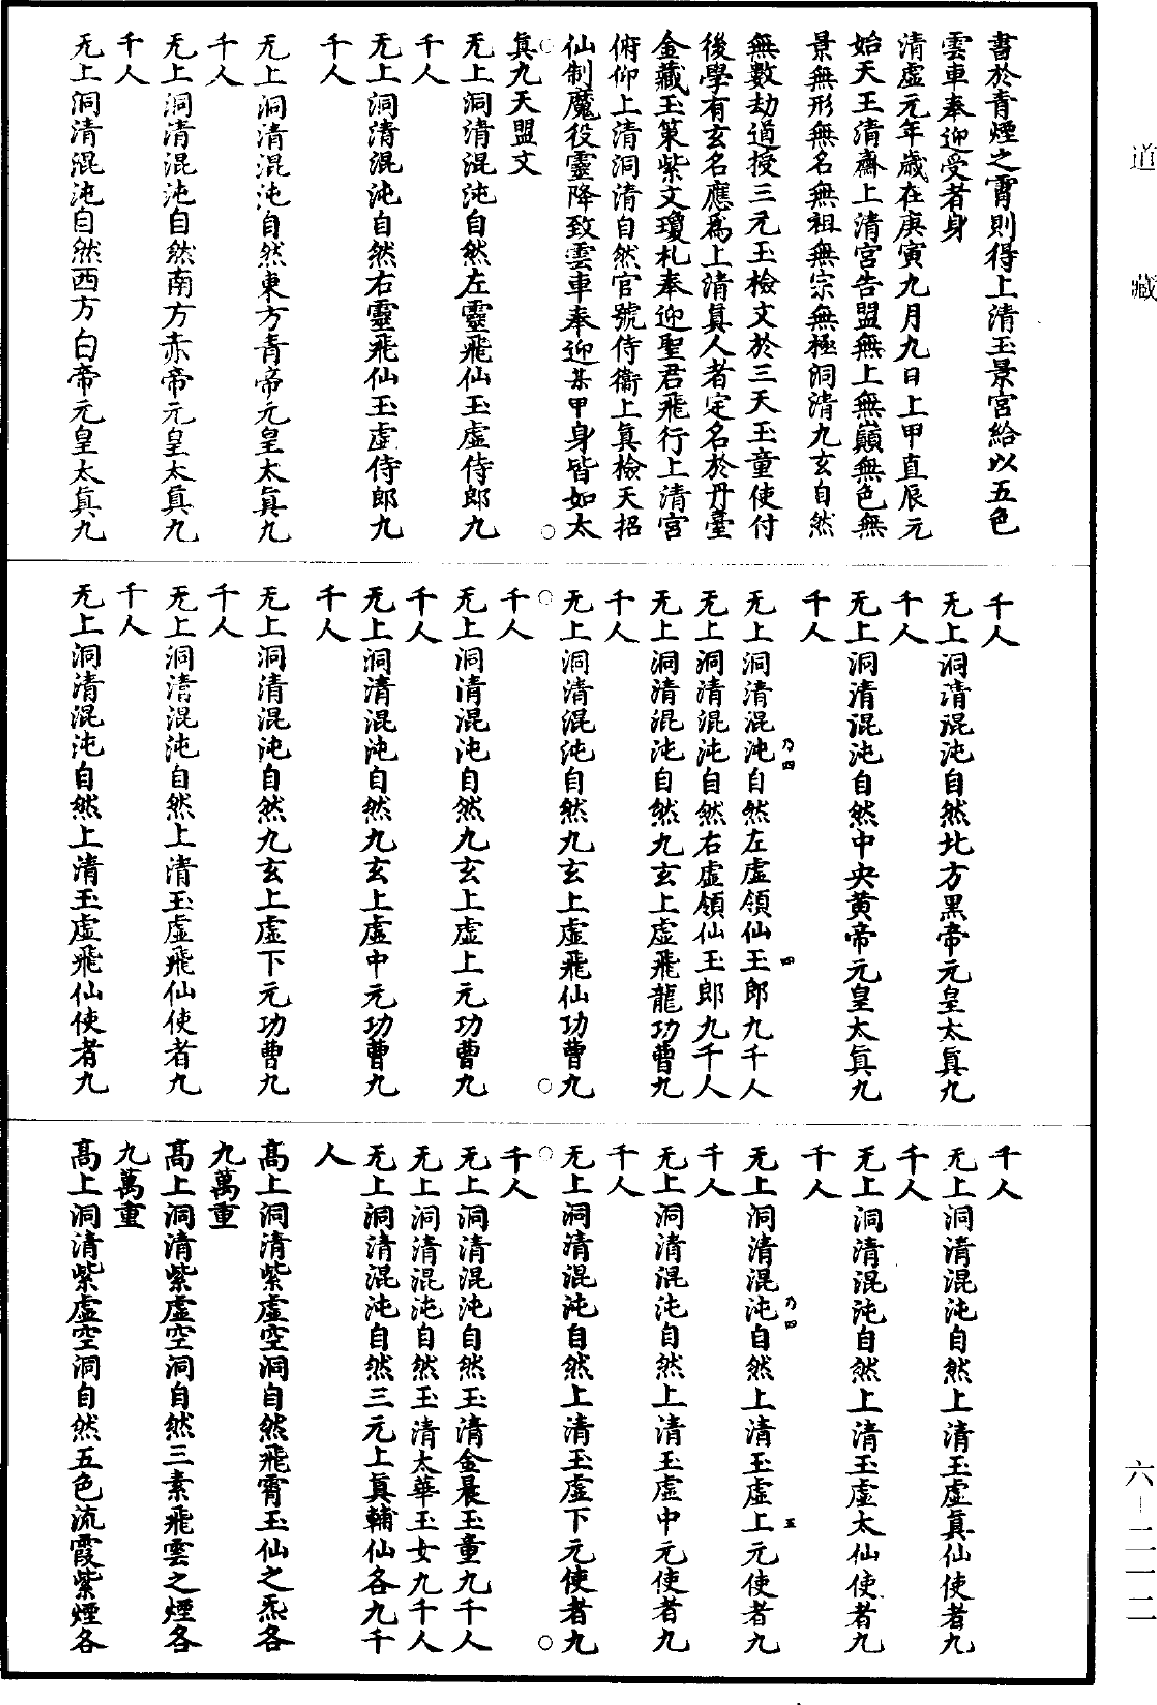 道藏
書於青煙之霄則得上清玉景宮給以五色
雲車奉迎受者身
清虛元年歲在庚寅九月九日上甲直辰元
始天王清齋上清宮告盟無上無巔無色無
景無形無名無祖無宗無極洞清九玄自然
無數劫道授三元玉檢文於三天玉童使付
後學有玄名應爲上清眞人者定名於丹臺
金藏玉策紫文瓊札奉迎聖君飛行上清宮
俯仰上清洞清自然官號侍衞上眞檢天招
仙制魔役靈降致雲車奉迎某甲身皆如太
眞九天盟文
无上洞清混沌自然左靈飛仙玉虛侍郎九
千人
无上洞清混沌自然右靈飛仙玉虛侍郎九
千人
无上洞清混沌自然東方青帝元皇太眞九
千人
无上洞清混沌自然南方赤帝元皇太眞九
千人
无上洞清混沌自然西方白帝元皇太眞九
千人
无上洞清混沌自然北方黑帝元皇太眞九
千人
无上洞清混沌自然中央黃帝元皇太眞九
千人
乃四 四
无上洞清混沌自然左虛領仙玉郎九千人
无上洞清混沌自然右虛領仙玉郎九千人
无上洞清混沌自然九玄上虛飛龍功曹九
千人
无上洞清混沌自然九玄上虛飛仙功曹九
千人
无上洞清混沌自然九玄上虛上元功曹九
千人
无上洞清混沌自然九玄上虛中元功曹九
千人
无上洞清混沌自然九玄上虛下元功曹九
千人
无上洞清混沌自然上清玉虛飛仙使者九
千人
无上洞清混沌自然上清玉虛飛仙使者九
千人
无上洞清混沌自然上清玉虛眞仙使者九
千人
无上洞清混沌自然上清玉虛太仙使者九
千人
乃四 五
无上洞清混沌自然上清玉虛上元使者九
千人
无上洞清混沌自然上清玉虛中元使者九
千人
无上洞清混沌自然上清玉虛下元使者九
千人
无上洞清混沌自然玉清金晨玉童九千人
无上洞清混沌自然玉清太華玉女九千人
无上洞清混沌自然三元上眞輔仙各九千
人
高上洞清紫虛空洞自然飛霄玉仙之炁各
九萬重
高上洞清紫虛空洞自然三素飛雲之煙各
九萬重
高上洞清紫虛空洞自然五色流霞紫煙各
六－二一二